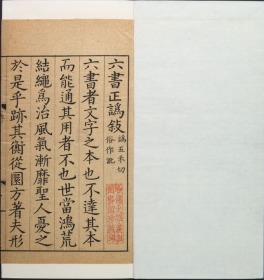 六書正譌敍譌五禾切俗作訛
六書者文字之本也不達其本
而能通其用者不也世當鴻荒
結繩為治風氣漸靡聖人憂之
於是乎跡其衡從圓方著夫形